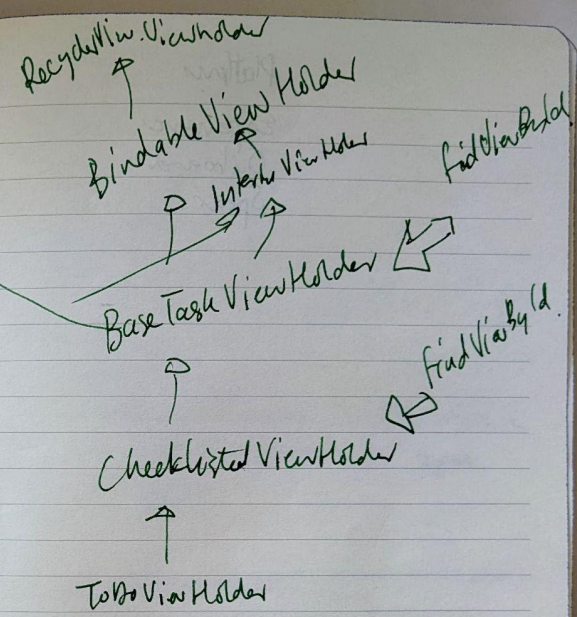 RecyclerView.Viewholder
BindableViewHolder
findViewById
BaseTaskViewHolder
findViewById.
CheeklistedViewHolder
ToDoViewHolder